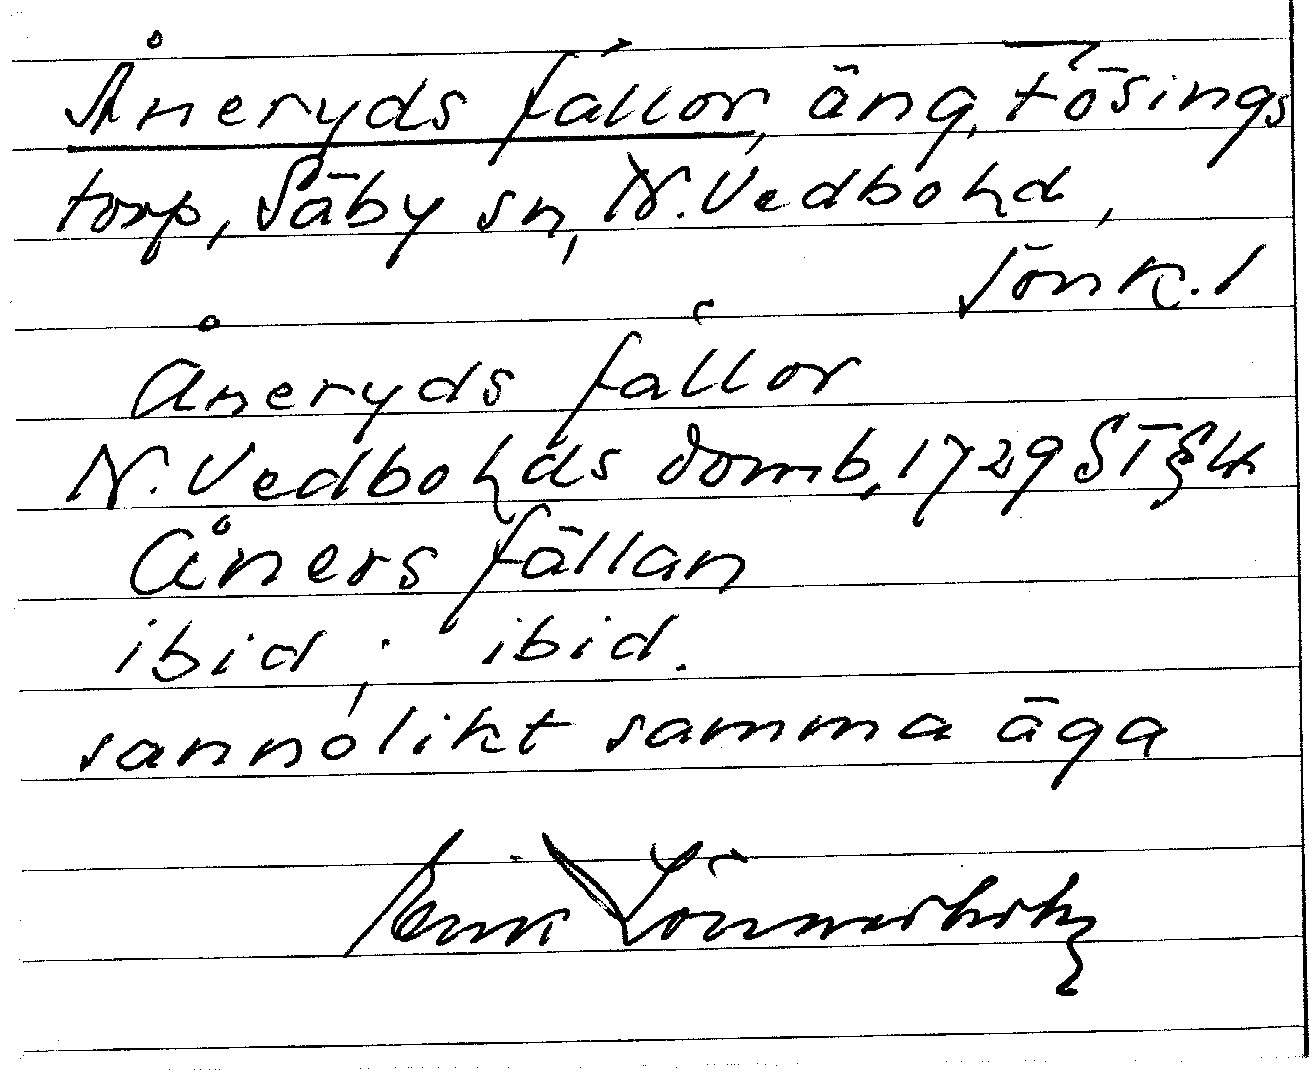 Åneryds fällor, äng, Tösings
torp, Säby sn, N. Vedbohd,
Jönk. l
Åneryds fällor
N. Vedbohds domb, 1729 ST §4
Åners fällan
ibid, ibid.
sannolikt samma äga
Erik Lönnerholm